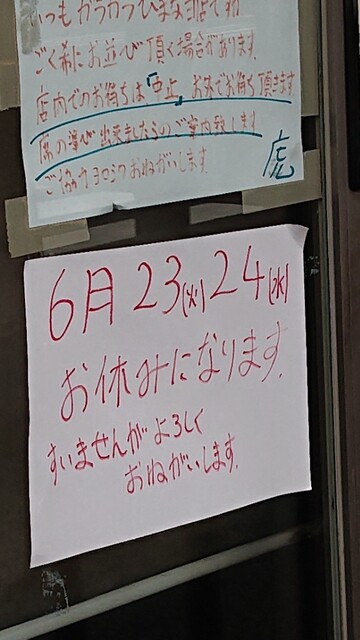 いつもガラガラひまな店ですが
ごく希にお並び頂く場合があります
店内でのお待ちは「中止」お外でお待ち頂きます
席の準び出来ましたらのご案内致します
ご協力ヨロシクおねがいします
虎
6月23(火)24(水)
お休みになります。
すいませんがよろしく
おねがいします。